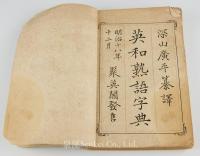 深山廣平纂譯
英和熟語字典
明治十八年
十二月
聚英閣發售